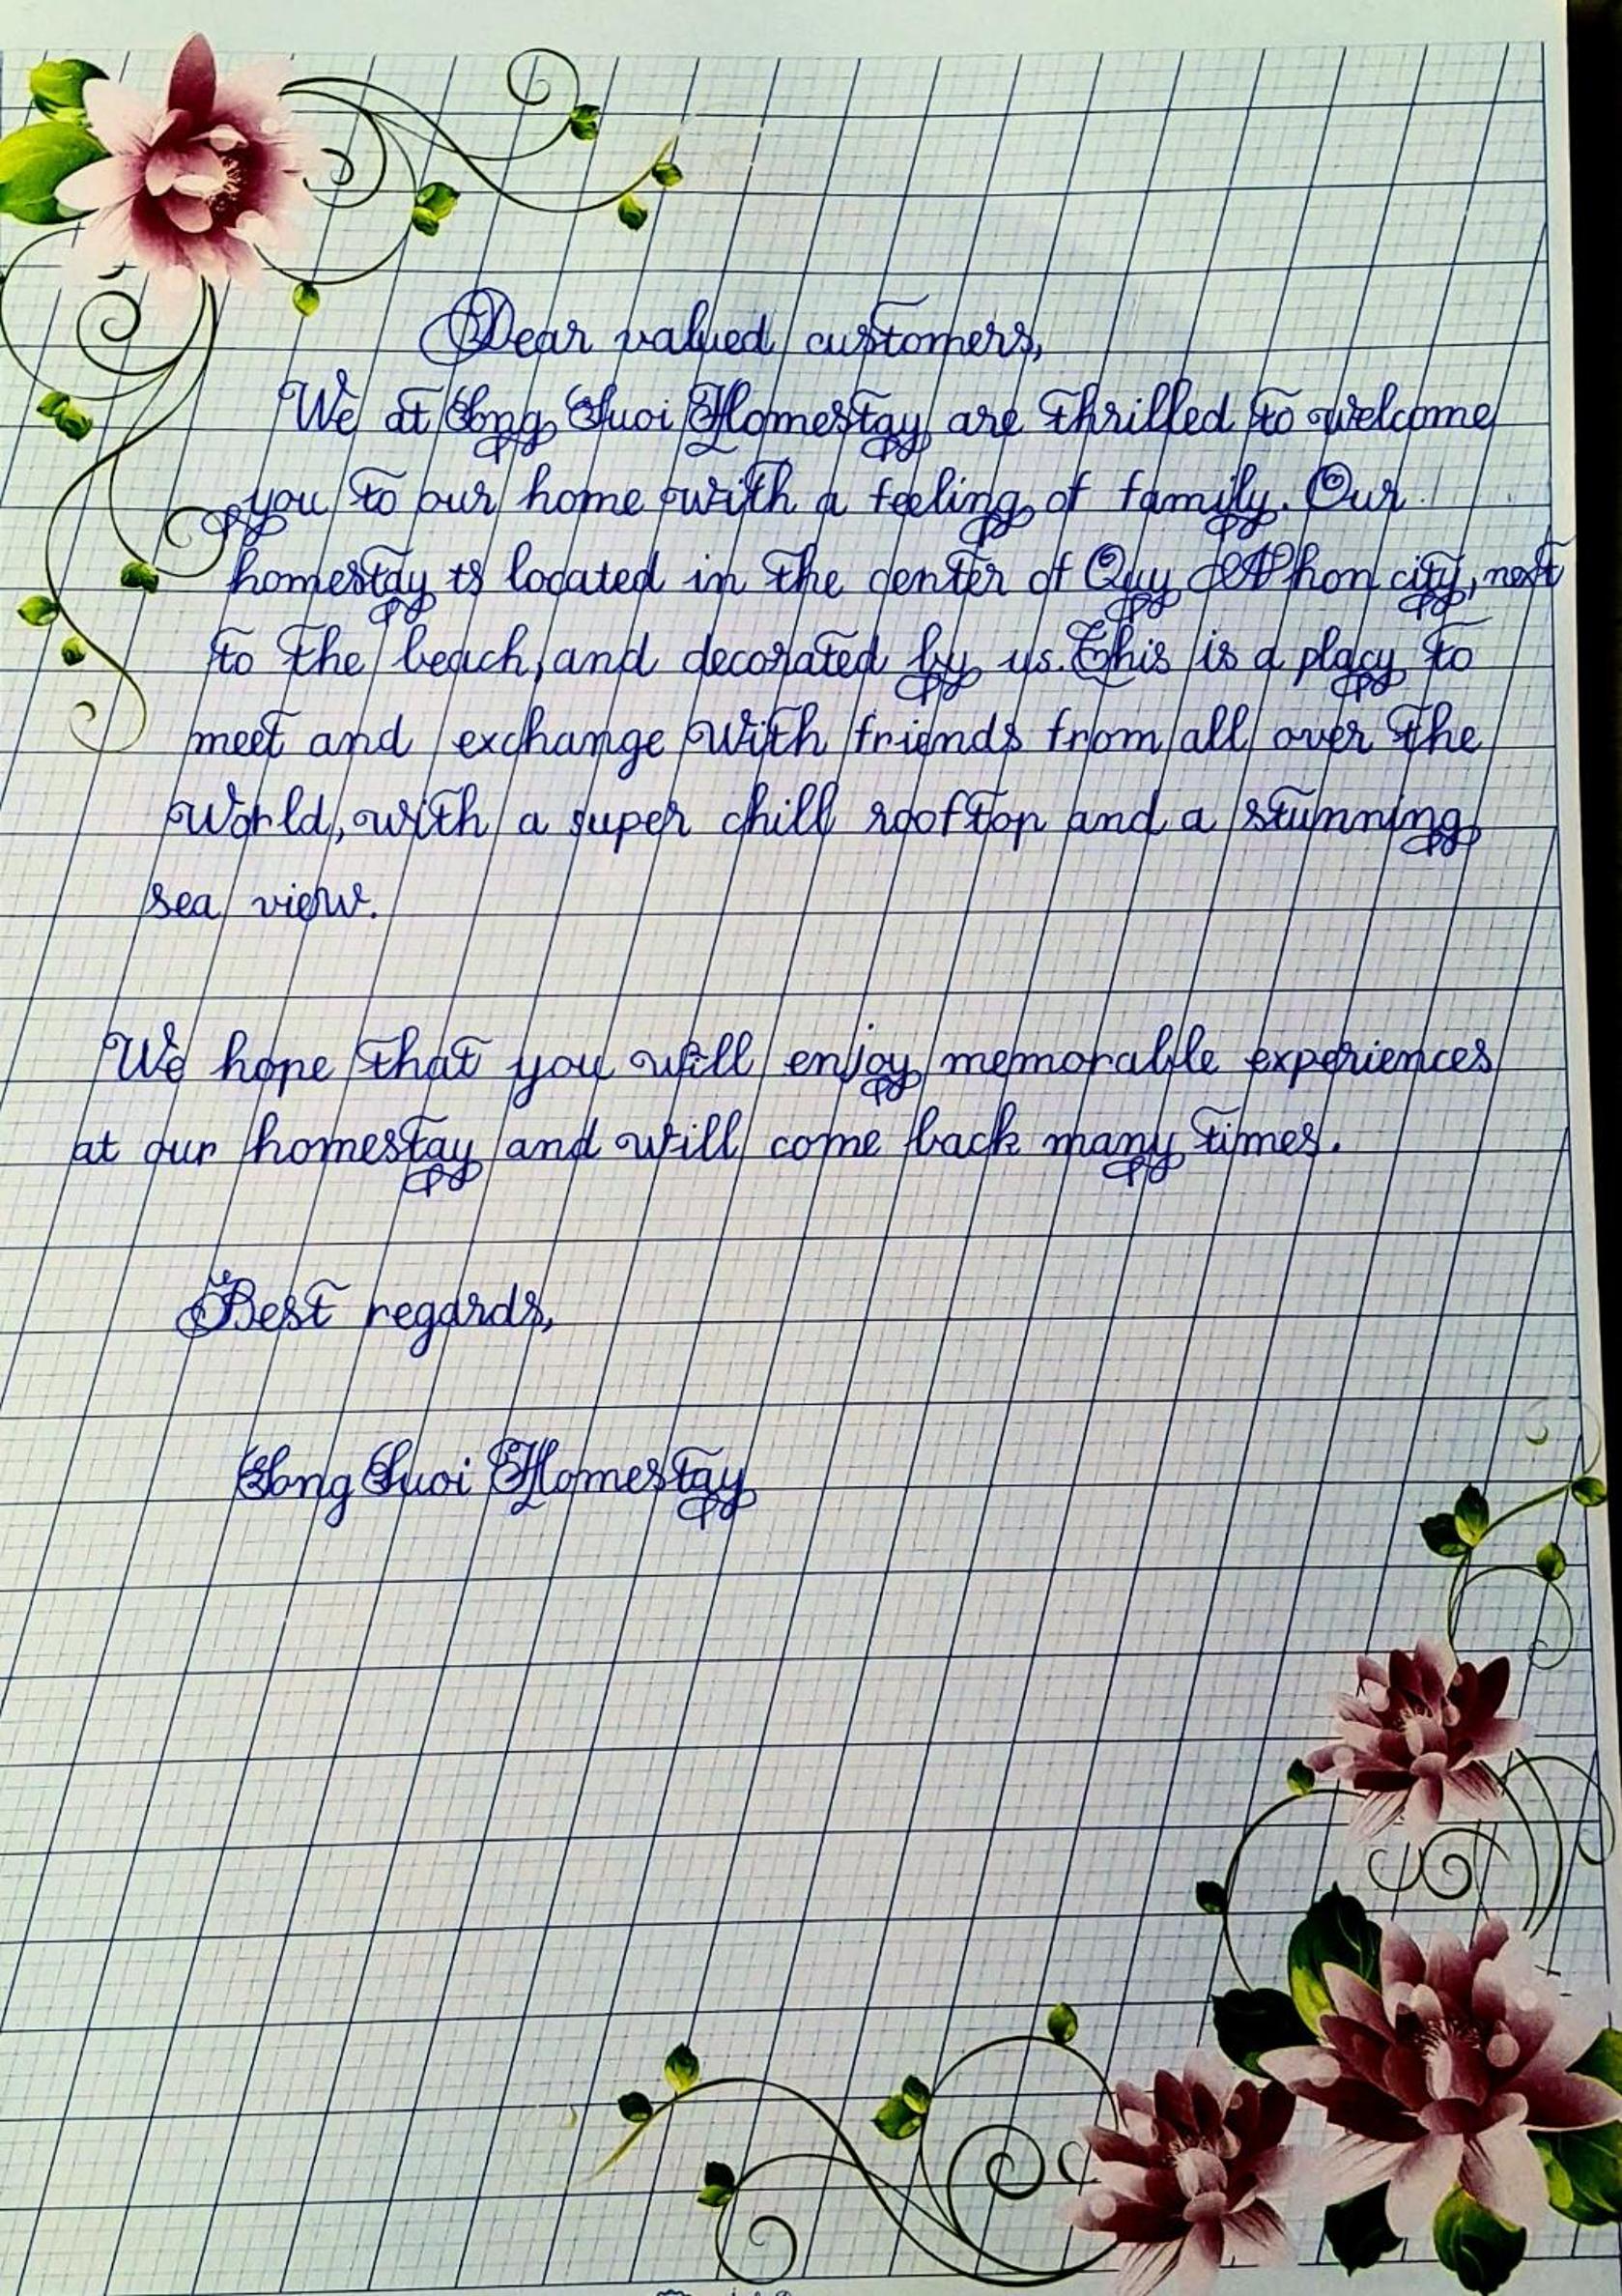 Dear valued customers,
We at Song Suoi Homestay are thrilled to welcome
you to our home with a feeling of family. Our
homestay is located in the center of Quy Nhon city, next
to the beach, and decorated by us. This is a placy to
meet and exchange with friends from all over the
World, with a super chill rooftop and a stunning
sea view.
We hope that you will enjoy memorable experiences
at our homestay and will come back many times.
Best regards,
Song Suoi Homestay